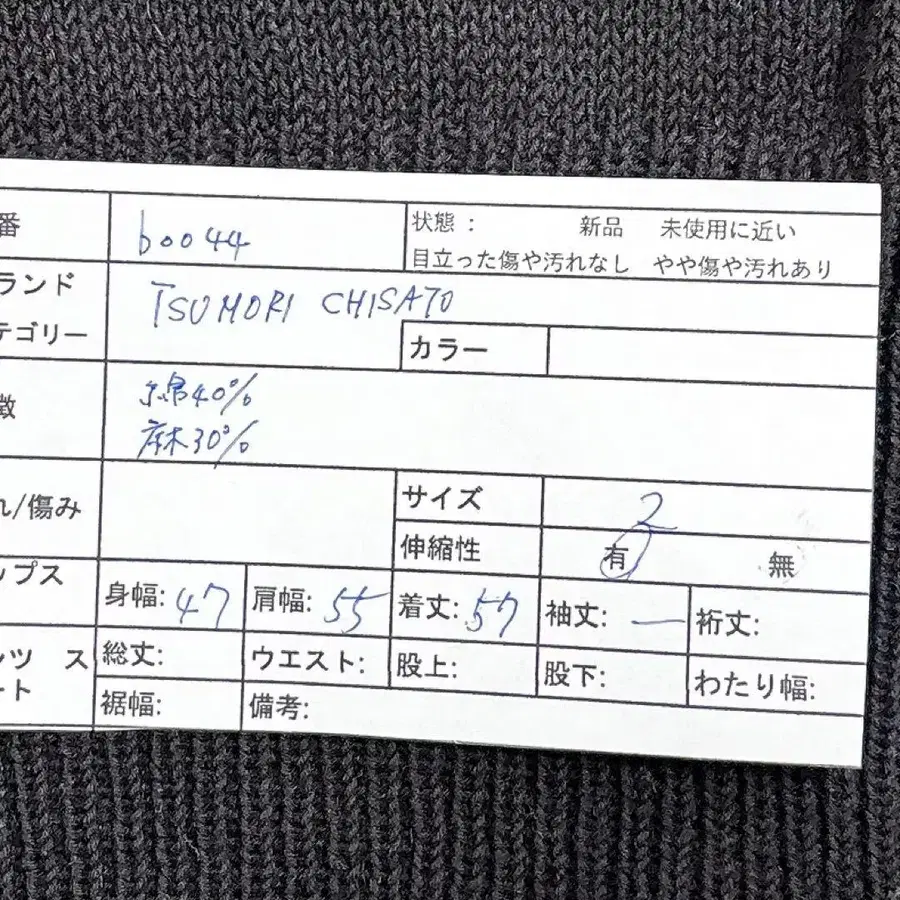 番 b0044 状態： 新品 未使用に近い
目立った傷や汚れなし やや傷や汚れあり
ランド TSUMORI CHISATO
テゴリー カラー
徴 綿40%
麻30%
れ/傷み サイズ 2
伸縮性 有 無
ップス 身幅: 47 肩幅: 55 着丈: 57 袖丈: — 裄丈:
ンツ ス 総丈: ウエスト: 股上: 股下: わたり幅:
ート 裾幅: 備考: